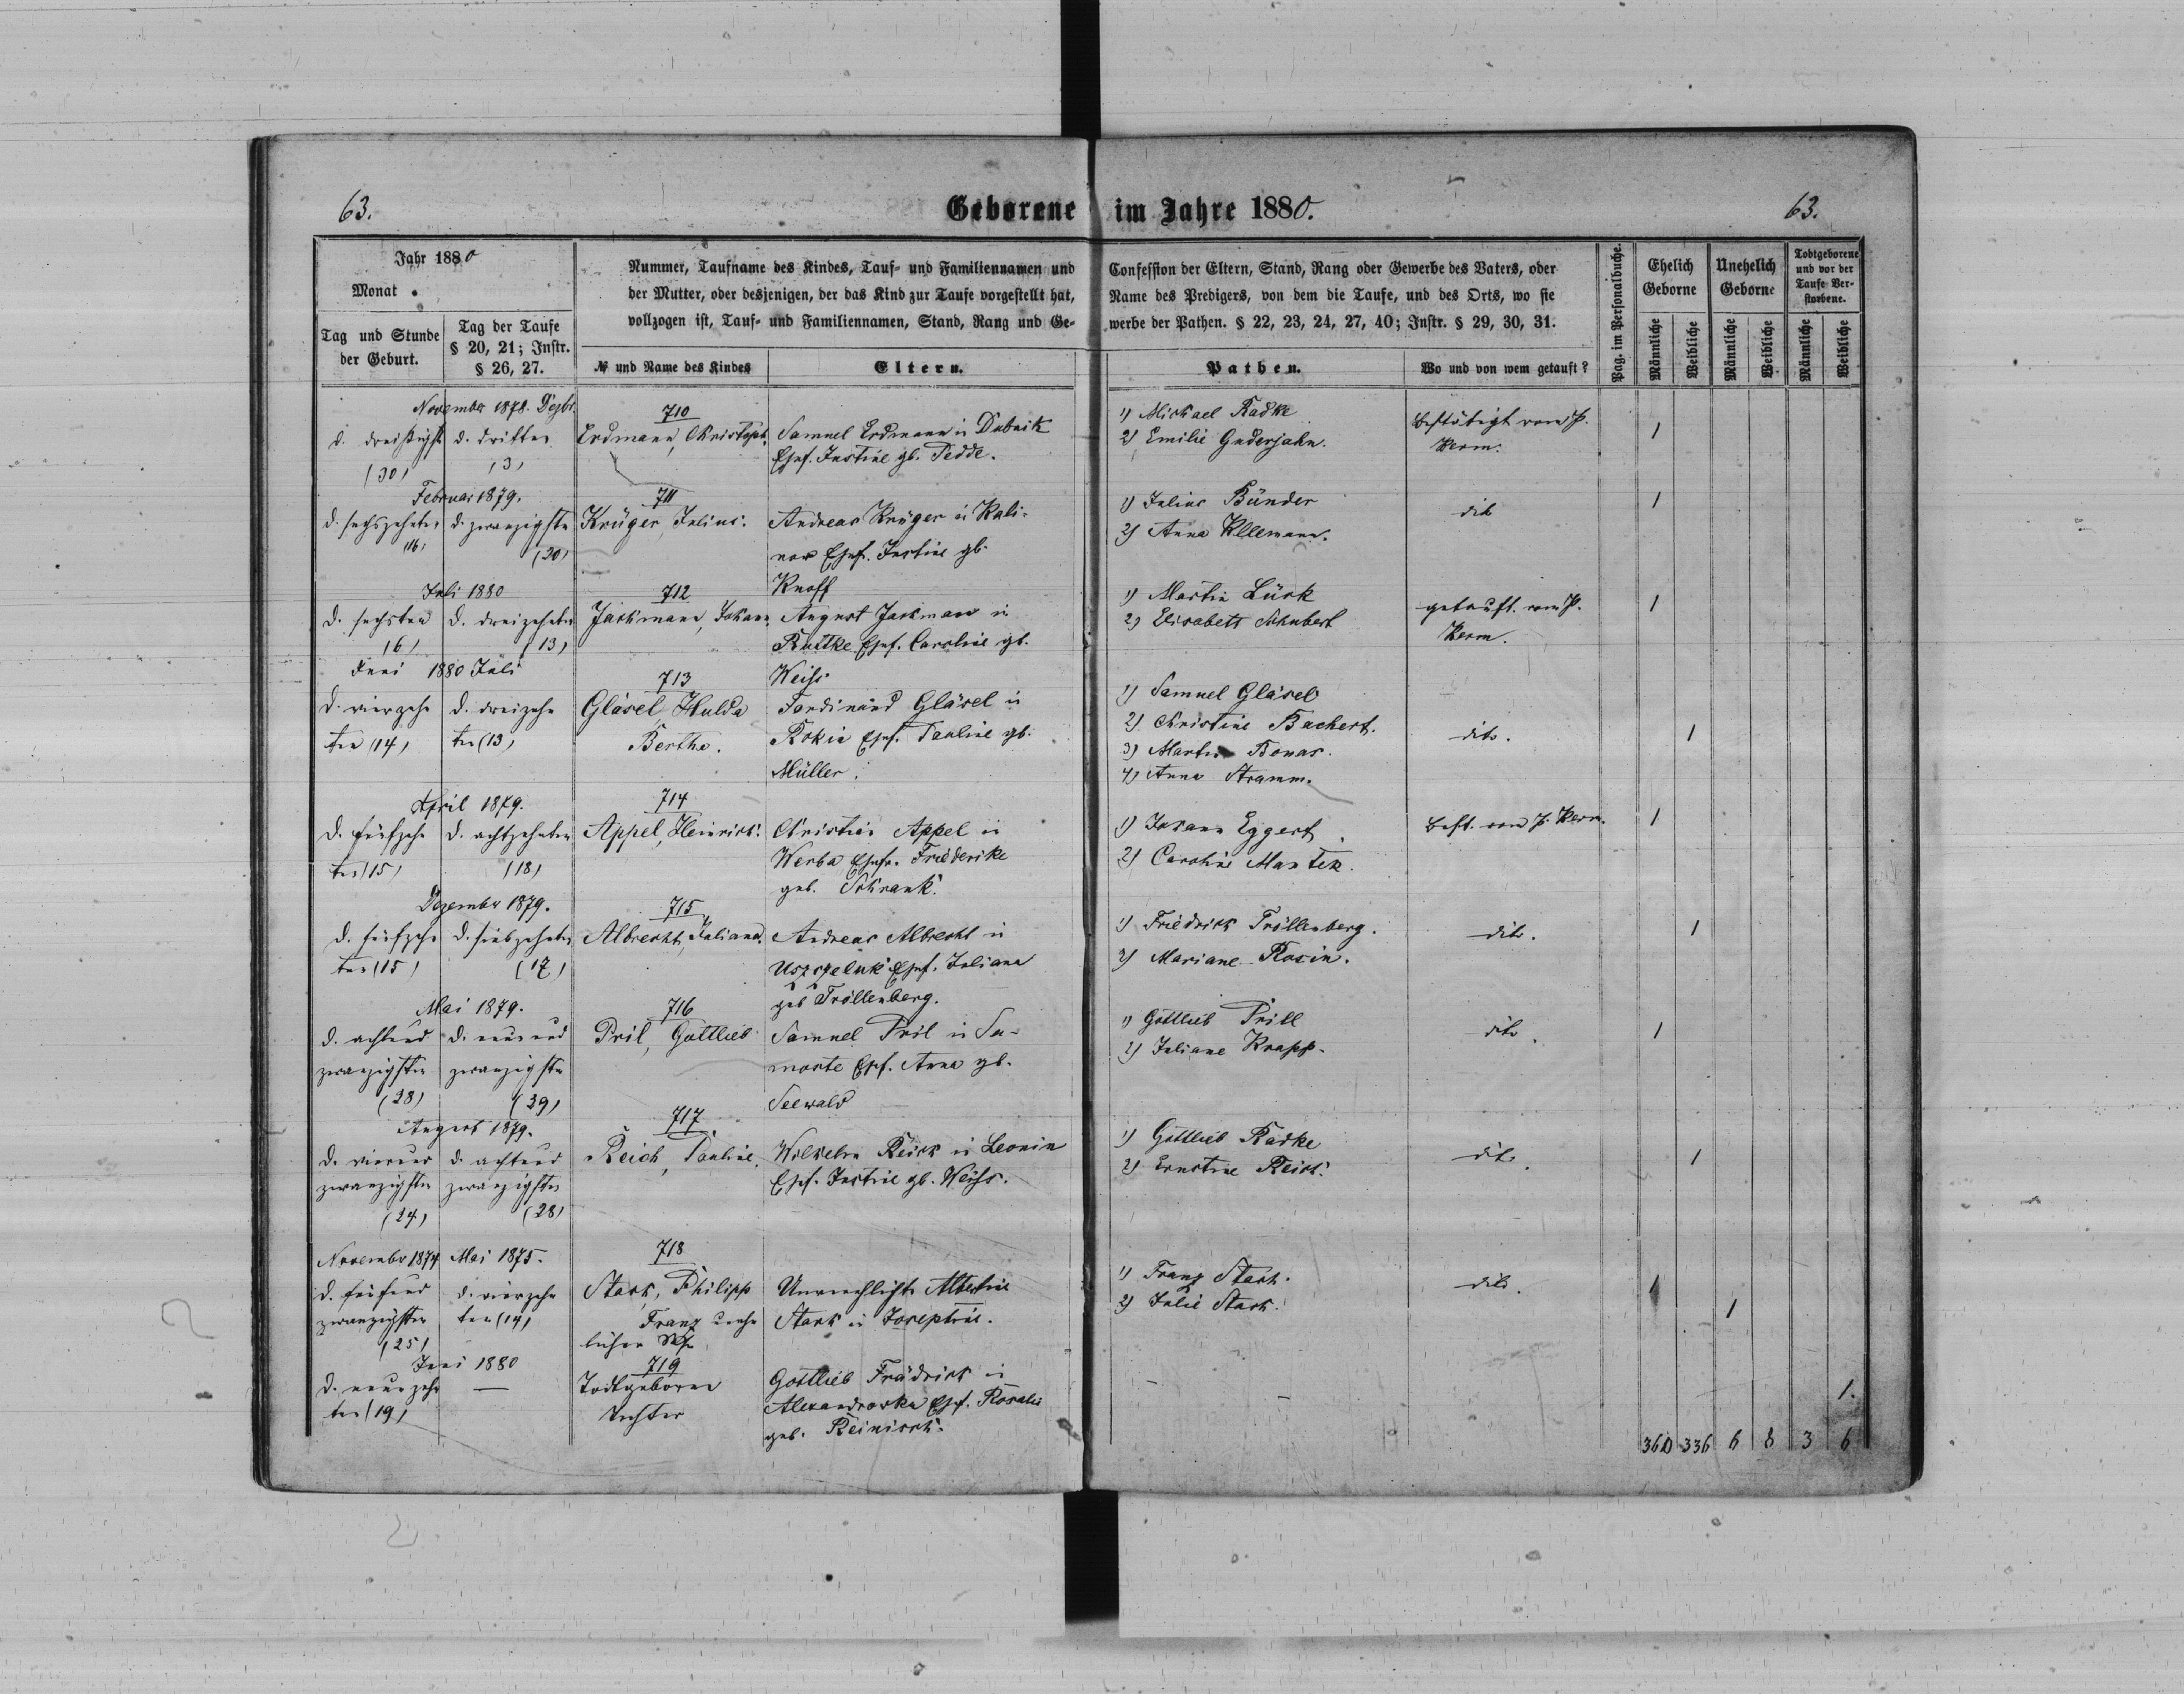 63.
Geborene im Jahre 1880.
63.
Jahr 1880
Monat
Tag und Stunde der Geburt.
Tag der Taufe § 20, 21; Instr. § 26, 27.
Nummer, Taufname des Kindes, Tauf- und Familiennamen und
der Mutter, oder desjenigen, der das Kind zur Taufe vorgestellt hat,
vollzogen ist, Tauf- und Familiennamen, Stand, Rang und Ge-
№ und Name des Kindes
Eltern.
Confession der Eltern, Stand, Rang oder Gewerbe des Vaters, oder
Name des Predigers, von dem die Taufe, und des Orts, wo sie
werbe der Pathen. § 22, 23, 24, 27, 40; Instr. § 29, 30, 31.
Pathen.
Wo und von wem getauft?
Pag. im Personalbuche.
Ehelich Geborne
Unehelich Geborne
Todtgeborene und vor der Taufe Verstorbene.
Männliche
Weibliche
Männliche
Weibliche
Männliche
Weibliche
November 1878. Dezbr.
d. dreißigst d. dritten
(30) (3)
710
Erdmann, Christoph.
Samuel Erdmann in Dubnik
Ehef. Justine gb. Tedde.
1) Michael Radke
2) Emilie Guderjahn.
bestätigt vom P.
Kerm.
1
Februar 1879.
d. sechszehnten d. zwanzigsten
(16) (20)
711
Krüger, Julius.
Andreas Krüger in Kali-
now Ehef. Justine gb.
Knoff
1) Julius Bünder
2) Anna Kllemann.
dito
1
Juli 1880
d. sechsten d. dreizehnten
(6) (13)
712
Jackmann, Johann
August Jackmann in
Ruttke Ehef. Caroline gb.
Weiss
1) Martin Lück
2) Elisabeth Schubert
getauft. vom P.
Kerm.
1
Juni 1880 Juli
d. vierzehn d. dreizehn
ten (14) ten (13)
713
Gläsel, Hulda
Bertha.
Ferdinand Gläsel in
Rokin Ehef. Pauline gb.
Müller.
1) Samuel Gläsel
2) Christine Bachert.
3) Martin Bonas.
4) Anna Stramm.
dito.
1
April 1879.
d. fünfzehn d. achtzehnten
ten (15) (18)
714
Appel, Heinrich.
Christian Appel in
Werba Ehefr. Friederike
geb. Schrank.
1) Johann Eggert
2) Caroline Mantek.
best. vom P. Kerm.
1
Dezember 1879.
d. fünfzehn d. siebzehnten
ten (15) (17)
715
Albrecht, Juliana.
Andreas Albrecht in
Uszczeluk Ehef. Juliana
geb Tröllenberg.
1) Friedrich Tröllenberg.
2) Mariane Rosin.
dito.
1
Mai 1879.
d. achtund d. neunund
zwanzigsten zwanzigsten
(28) (29)
716
Pril, Gottlieb
Samuel Pril in Sa-
moste Ehef. Anna gb.
Seewald
1) Gottlieb Prill
2) Juliane Krapp.
dito.
1
August 1879.
d. vierund d. achtund
zwanzigsten zwanzigsten
(24) (28)
717.
Reich, Pauline.
Wilhelm Reich in Leonin
Ehef. Justine gb. Weiss.
1) Gottlieb Radke
2) Ernstine Reich.
dito.
1
November 1874 Mai 1875.
d. fünfund d. vierzehn
zwanzigsten ten (14)
(25)
718
Stark, Philipp
Franz unehe
licher
Unverehelichte Albertine
Stark in Josephine.
1) Franz Stark.
2) Julie Stark.
dito.
1
1
Juni 1880
d. neunzehn —
ten (19)
719
Todtgeborene
Tochter
Gottlieb Frädrich in
Alexandrowka Ehef. Rosalie
geb. Reinisch.
-
-
1.
360 336 6 8 3 6